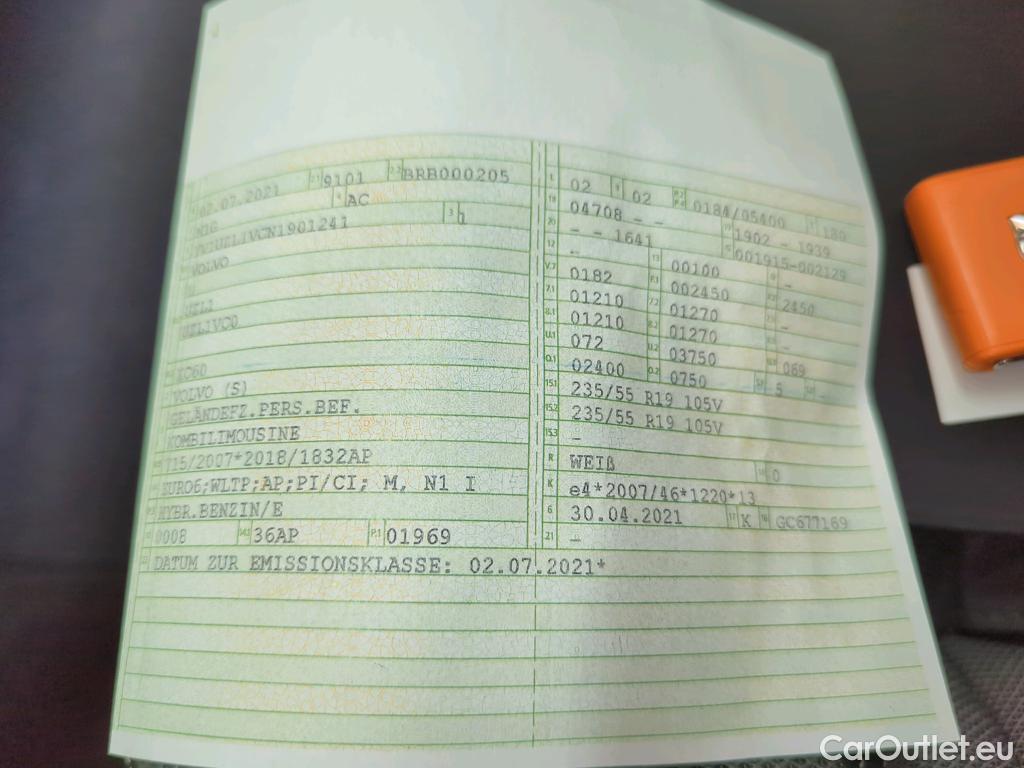 02.07.2021 2.1 9101 2.2 BRB000205
M1G 4 AC
3 h
VOLVO
UZL1
UZL1VC0
XC60
VOLVO (S)
GELÄNDEFZ.PERS.BEF.
KOMBILIMOUSINE
715/2007*2018/1832AP
EURO6;WLTP;AP;PI/CI; M, N1 I
HYBR.BENZIN/E
0008 14.1 36AP P.1 01969
DATUM ZUR EMISSIONSKLASSE: 02.07.2021*
L 02 9 02 P.2 P.4 0184/05400 T 180
18 04708 - - 19 1902 - 1939
20 - - 1641 G 001915-002129
12 - 13 00100 Q -
V.7 0182 F.1 002450 F.2 2450
7.1 01210 7.2 01270 7.3 -
8.1 01210 8.2 01270 8.3 -
U.1 072 U.2 03750 U.3 069
O.1 02400 O.2 0750 S.1 5 S.2 -
15.1 235/55 R19 105V
15.2 235/55 R19 105V
15.3 -
R WEIß 11 0
K e4*2007/46*1220*13
6 30.04.2021 17 K 16 GC677169
21 -
CarOutlet.eu